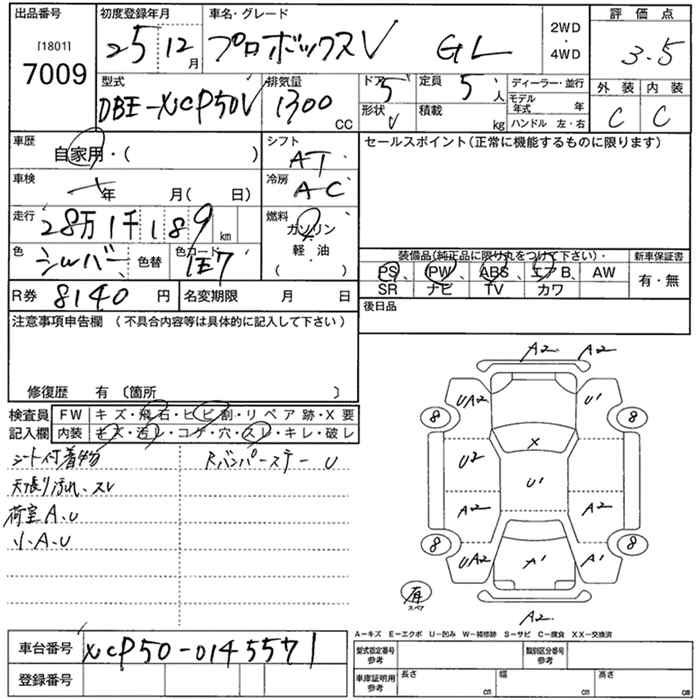 出品番号 初度登録年月 車名・グレード 評価点
[1801] 7009 25 12月 プロボックスV GL 2WD・4WD 3.5
型式 排気量 ドア 5 定員 5人 ディーラー・並行 外装 内装
DBE-NCP50V 1300 CC 形状 V 積載 kg モデル年式 年 C C
ハンドル 左・右
車歴 シフト セールスポイント(正常に機能するものに限ります)
自家用・( ) AT
車検 冷房
年 月( 日) AC
走行 燃料
28万1千189 km ガソリン
色 シルバー 色替 色コード 1E7 軽・油 ( )
装備品(純正品に限り丸をつけて下さい)・ 新車保証書
PS、PW、ABS、エアB、AW 有・無
SR ナビ TV カワ
R券 8140円 名変期限 月 日 後日品
注意事項申告欄 (不具合内容等は具体的に記入して下さい)
修復歴 有 〔箇所 〕
検査員 FW キズ・飛石・ヒビ割・リペア跡・X要
記入欄 内装 キズ・汚レ・コゲ・穴・スレ・キレ・破レ
シート付着物 Rバンパーステー U
天張り汚れ、スレ
荷室A、U
小A、U
A2 A2
UA2 U1
8 8
X
U2 U1
A2 A2
8 8
UA2 A1 A1
有 スペア
A2
A-キズ E-エクボ U-凹み W-補修跡 S-サビ C-腐食 XX-交換済
車台番号 NCP50-0145571 型式指定番号 参考 類別区分番号 参考
登録番号 車庫証明用 参考 長さ cm 幅 cm 高さ cm